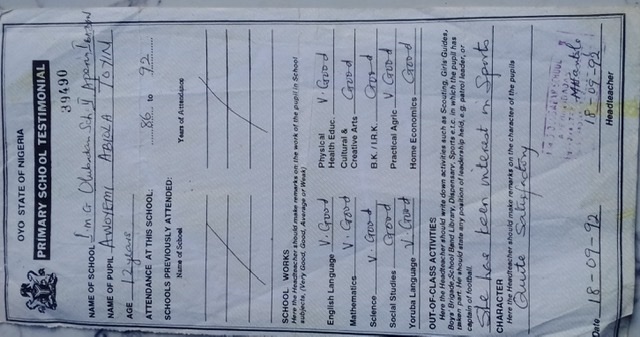 OYO STATE OF NIGERIA
PRIMARY SCHOOL TESTIMONIAL
39490
NAME OF SCHOOL L.M.G Olubadan Sch. II Aperin Ibadan
NAME OF PUPIL AWOYEMI ABIOLA TOYIN
AGE 12 years
ATTENDANCE AT THIS SCHOOL: 86 to 92
SCHOOLS PREVIOUSLY ATTENDED:
Name of School Years of Attendance
SCHOOL WORKS
Here the Headteacher should make remarks on the work of the pupil in School
subjects, (Very Good, Good, Average or Weak)
English Language V. Good Physical Health Educ. V. Good
Mathematics V. Good Cultural & Creative Arts Good
Science V. Good B.K./I.R.K. Good
Social Studies Good Practical Agric V. Good
Yoruba Language V. Good Home Economics Good
OUT-OF-CLASS ACTIVITIES
Here the Headteacher should write down activities such as Scouting, Girls Guides,
Boys' Brigade, School Band Library, Dispensary, Sports e.t.c. in which the pupil has
taken part. He should state any position of leadership held, e.g. patrol leader, or
captain of football.
She has keen interest in Sports
CHARACTER
Here the Headteacher should make remarks on the character of the pupils
Quite Satisfactory
Date 18-09-92
18-09-92
Headteacher